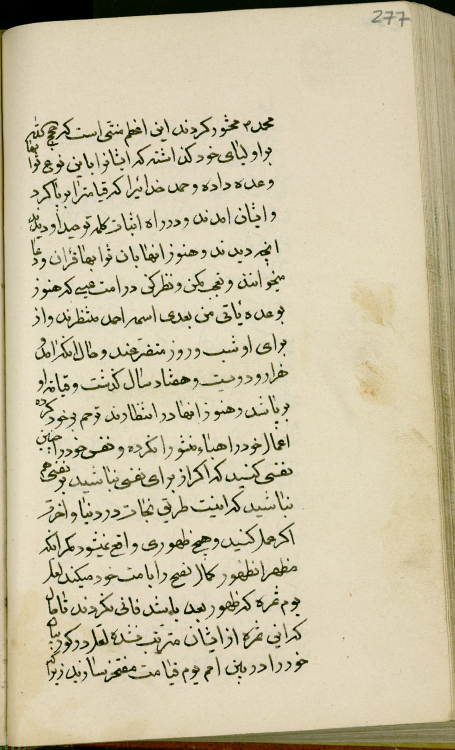 277
محمد ص محشور کردند این اعظم منتی است که حجج الله
بر اولیای خود گذاشته که ایشانرا باین نوع ثوابها
وعده داده و حمد خدائیرا که قیامترا برپا کرد
و ایشان آمدند و در راه اثبات کلمه توحید او دیدند
آنچه دیدند و هنوز آنها بآن ثوابها قرآن و دعا
میخوانند و تعجب مکن و نظر کن در امت عیسی که هنوز
بوعده یاتی من بعدی اسمه احمد منتظرند و از
برای او شب و روز متضرعند و حال آنکه آمد
هزار و دویست و هفتاد سال گذشت و قیامة او
برپا شد و هنوز آنها در انتظارند ترحم بر خود کرده
اعمال خود را هباء منثورا نکرده و نفس خود را چنین
نفسی کنید که اگر از برای نفسی نباشید بر نفسی هم
نباشید که اینست طریق نجات در دنیا و آخرت
اگر عمل کنید و هیچ ظهوری واقع نمیشود مگر آنکه
مظهر آن ظهور کمال نصح را بامت خود میکند لعل
یوم ثمره که ظهور بعد باشد فانی نگردند قابل
که آنی ثمره از ایشان مترتب شده لعل در کور بیان
خود را در بین امم یوم قیامت مفتخر سازید زیرا که